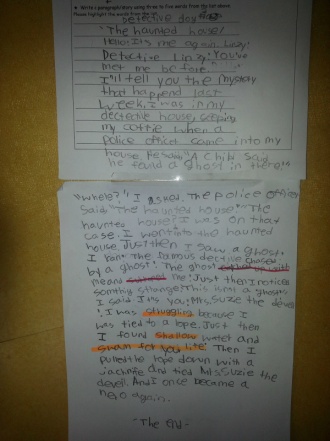 • Write a paragraph/story using three to five words from the list above.
Please highlight the words from the list.
detective dog
"The haunted house!
Hello! Its me again. Linzy!
Detective Linzy! You've
met me before.
I'll tell you the mystory
that happend last
week. I was in my
dectective house, seeping
my coffie when a
police officer came into my
house. He said, "A Chibi said
he found a ghost in there!"
"Where?" I asked. The police officer
said "The haunted house" "The
haunted house? I was on that
case. I went into the haunted
house. Just then I saw a ghost.
I ran. The famous dective chased
by a ghost! The ghost
meand me! Just then I notices
somthig strange. This isnt a ghost.
I said. Its you, Mrs. Suzie the devell
! I was struggling because I
was tied to a rope. Just then
I found shallow water and
swam for you life! Then I
pulled the rope down with a
jacknife and tied Mrs Suzie the
devell. And I once became a
hero again.
- The End -